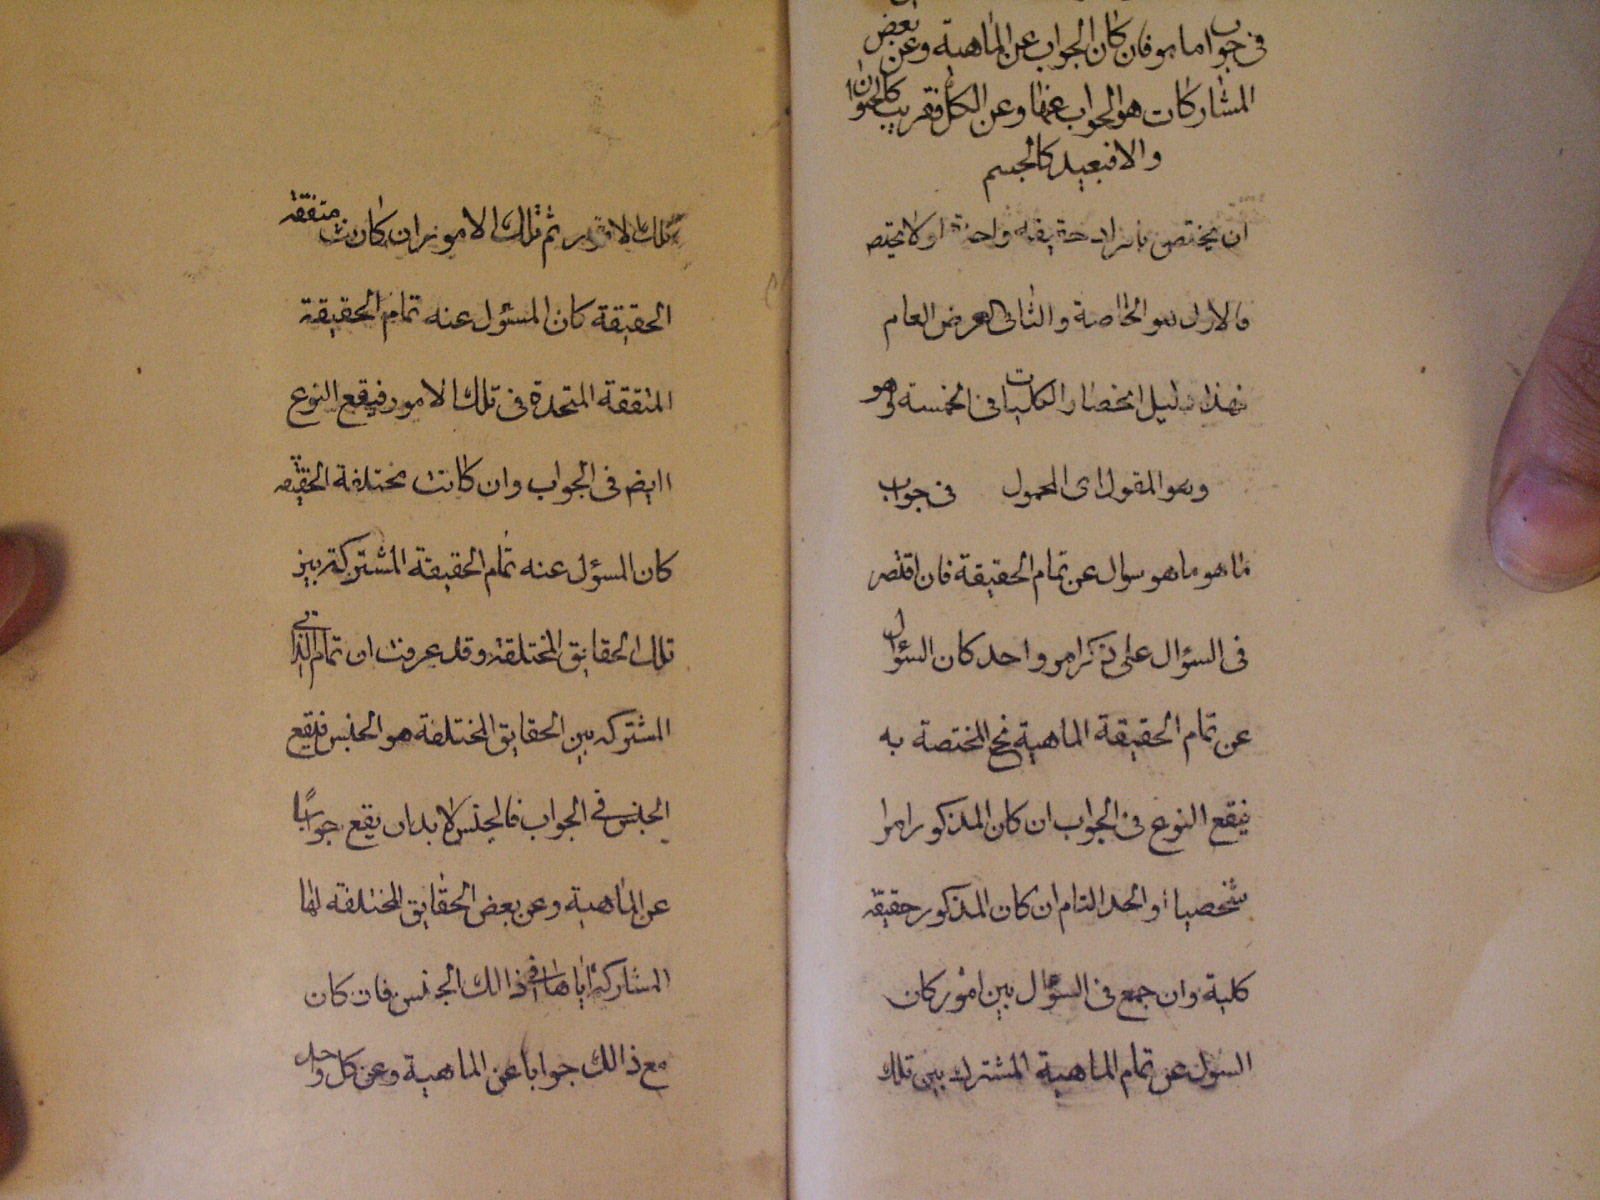 فى جواب ما هو فان كان الجواب عن الماهية وعن بعض
المشاركات هو الجواب عنها وعن الكل فقريب كالحيوان
والا فبعيد كالجسم
ان يختص بافراد حقيقة واحدة او لا يختص
فالاول هو الخاصة والثانى العرض العام
فهذا دليل انحصار الكليات فى الخمسة
وهو المقول اى المحمول فى جواب
ما هو ما هو سوال عن تمام الحقيقة فان اقتصر
فى السؤال على ذكر امر واحد كان السؤال
عن تمام الحقيقة الماهية المختصة به
فيقع النوع فى الجواب ان كان المذكور امرا
شخصيا او الحد التام ان كان المذكور حقيقة
كلية وان جمع فى السؤال بين امور كان
السول عن تمام الماهية المشترك بين تلك
تلك الامور ثم تلك الامور ان كانت متفقة
الحقيقة كان المسئول عنه تمام الحقيقة
المتفقة المتحدة فى تلك الامور فيقع النوع
ايض فى الجواب وان كانت مختلفة الحقيقة
كان المسؤل عنه تمام الحقيقة المشتركة بين
تلك الحقايق المختلفة وقد عرفت ان تمام الذاتى
المشتركة بين الحقايق المختلفة هو الجنس فيقع
الجنس فى الجواب فالجنس لا بد ان يقع جوابًا
عن الماهية وعن بعض الحقايق المختلفة لها
المشاركة اياها فى ذالك الجنس فان كان
مع ذالك جوابا عن الماهية وعن كل واحد